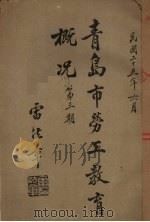 民國二十五年六月
青島市勞工教育
概況
第三期
雷法章